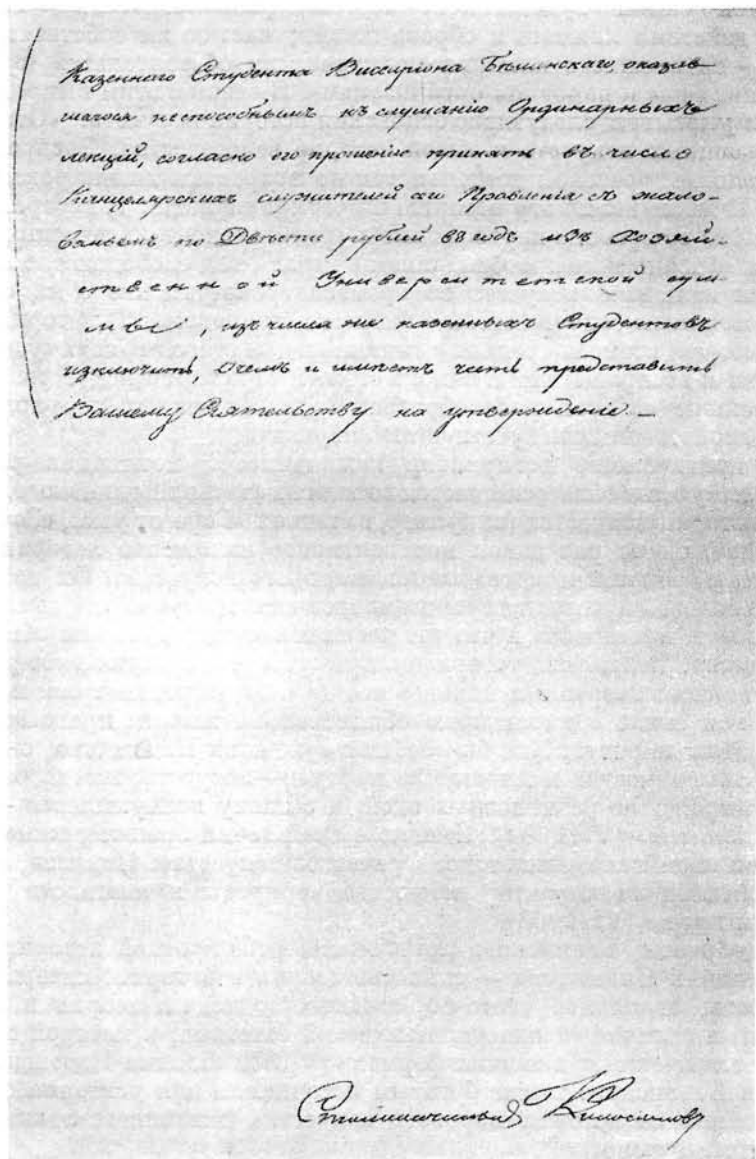 Казеннаго Студента Виссаріона Бѣлинскаго, оказав-
шагося неспособнымъ къ слушанію Ординарныхъ
лекцій, согласно его прошенію принять въ число
Канцелярскихъ служителей сего Правленія съ жало-
ваньемъ по Двѣсти рублей въ годъ изъ хозяй-
ственной Университетской сум-
мы, изъ числа же казенныхъ Студентовъ
изключить, о чемъ и имѣетъ честь представить
Вашему Сіятельству на утвержденіе. —
Столоначальникъ